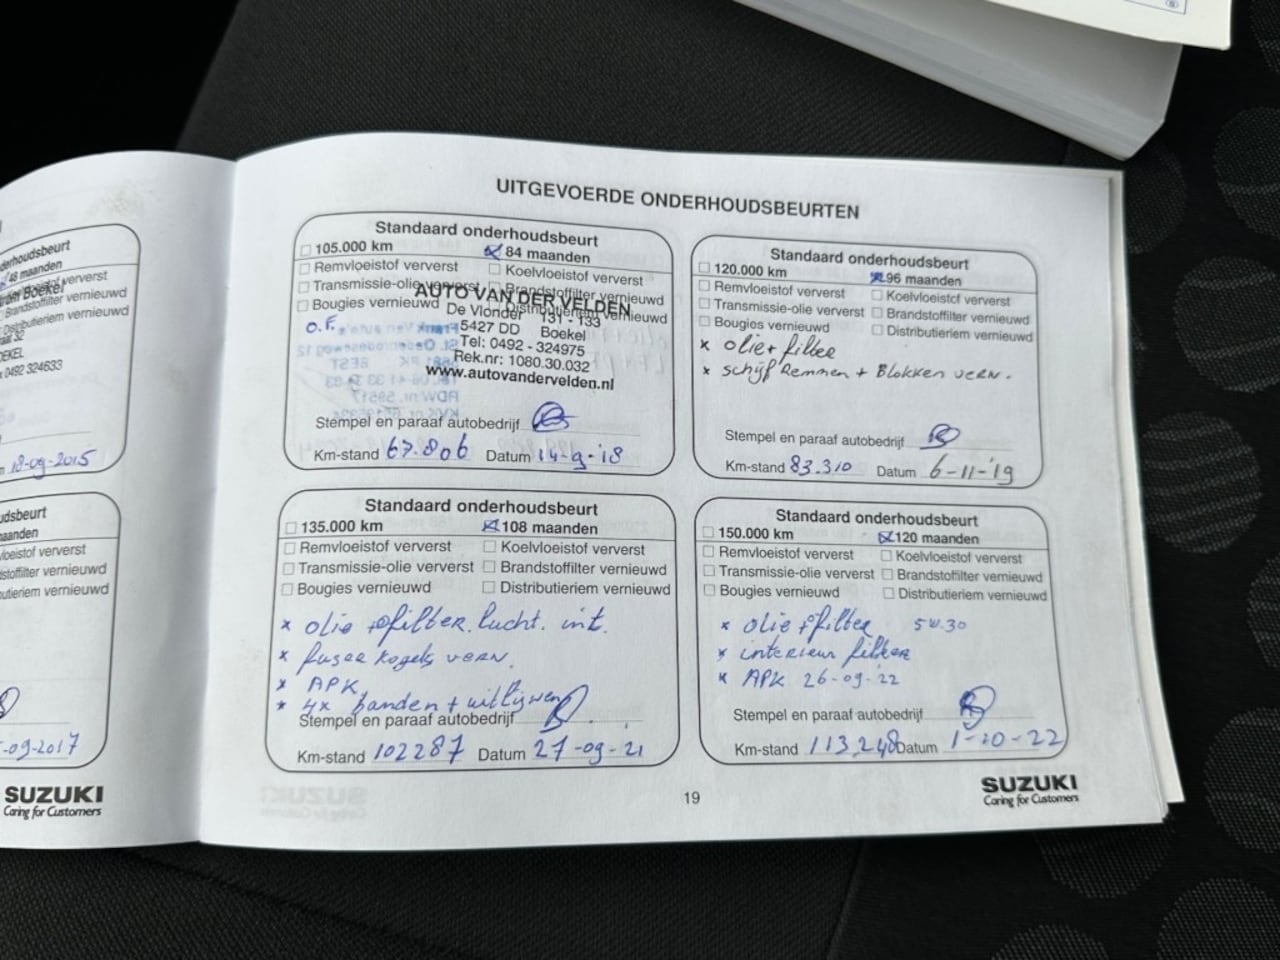 UITGEVOERDE ONDERHOUDSBEURTEN
Standaard onderhoudsbeurt
105.000 km 84 maanden
Remvloeistof ververst Koelvloeistof ververst
Transmissie-olie ververst Brandstoffilter vernieuwd
Bougies vernieuwd Distributieriem vernieuwd
O.F.
AUTO VAN DER VELDEN
De Vlonder 131 - 133
5427 DD Boekel
Tel: 0492 - 324975
Rek.nr: 1080.30.032
www.autovandervelden.nl
Stempel en paraaf autobedrijf
Km-stand 67.806 Datum 14-9-'18
Standaard onderhoudsbeurt
120.000 km 96 maanden
Remvloeistof ververst Koelvloeistof ververst
Transmissie-olie ververst Brandstoffilter vernieuwd
Bougies vernieuwd Distributieriem vernieuwd
x olie + filter
x schijf Remmen + Blokken vern.
Stempel en paraaf autobedrijf
Km-stand 83.310 Datum 6-11-'19
Standaard onderhoudsbeurt
135.000 km 108 maanden
Remvloeistof ververst Koelvloeistof ververst
Transmissie-olie ververst Brandstoffilter vernieuwd
Bougies vernieuwd Distributieriem vernieuwd
x olie + filter. lucht. int.
x fusee kogels vern.
x APK
x 4x banden + uitlijnen
Stempel en paraaf autobedrijf
Km-stand 102287 Datum 27-09-21
Standaard onderhoudsbeurt
150.000 km 120 maanden
Remvloeistof ververst Koelvloeistof ververst
Transmissie-olie ververst Brandstoffilter vernieuwd
Bougies vernieuwd Distributieriem vernieuwd
x olie + filter 5W.30
x interieur filter
x APK 26-09-22
Stempel en paraaf autobedrijf
Km-stand 113.248 Datum 1-10-22
19
SUZUKI
Caring for Customers
maanden
ververst
Boekel
Brandstoffilter vernieuwd
Distributieriem vernieuwd
0492 324633
18-09-2015
maanden
ververst
vernieuwd
vernieuwd
-09-2017
SUZUKI
Caring for Customers